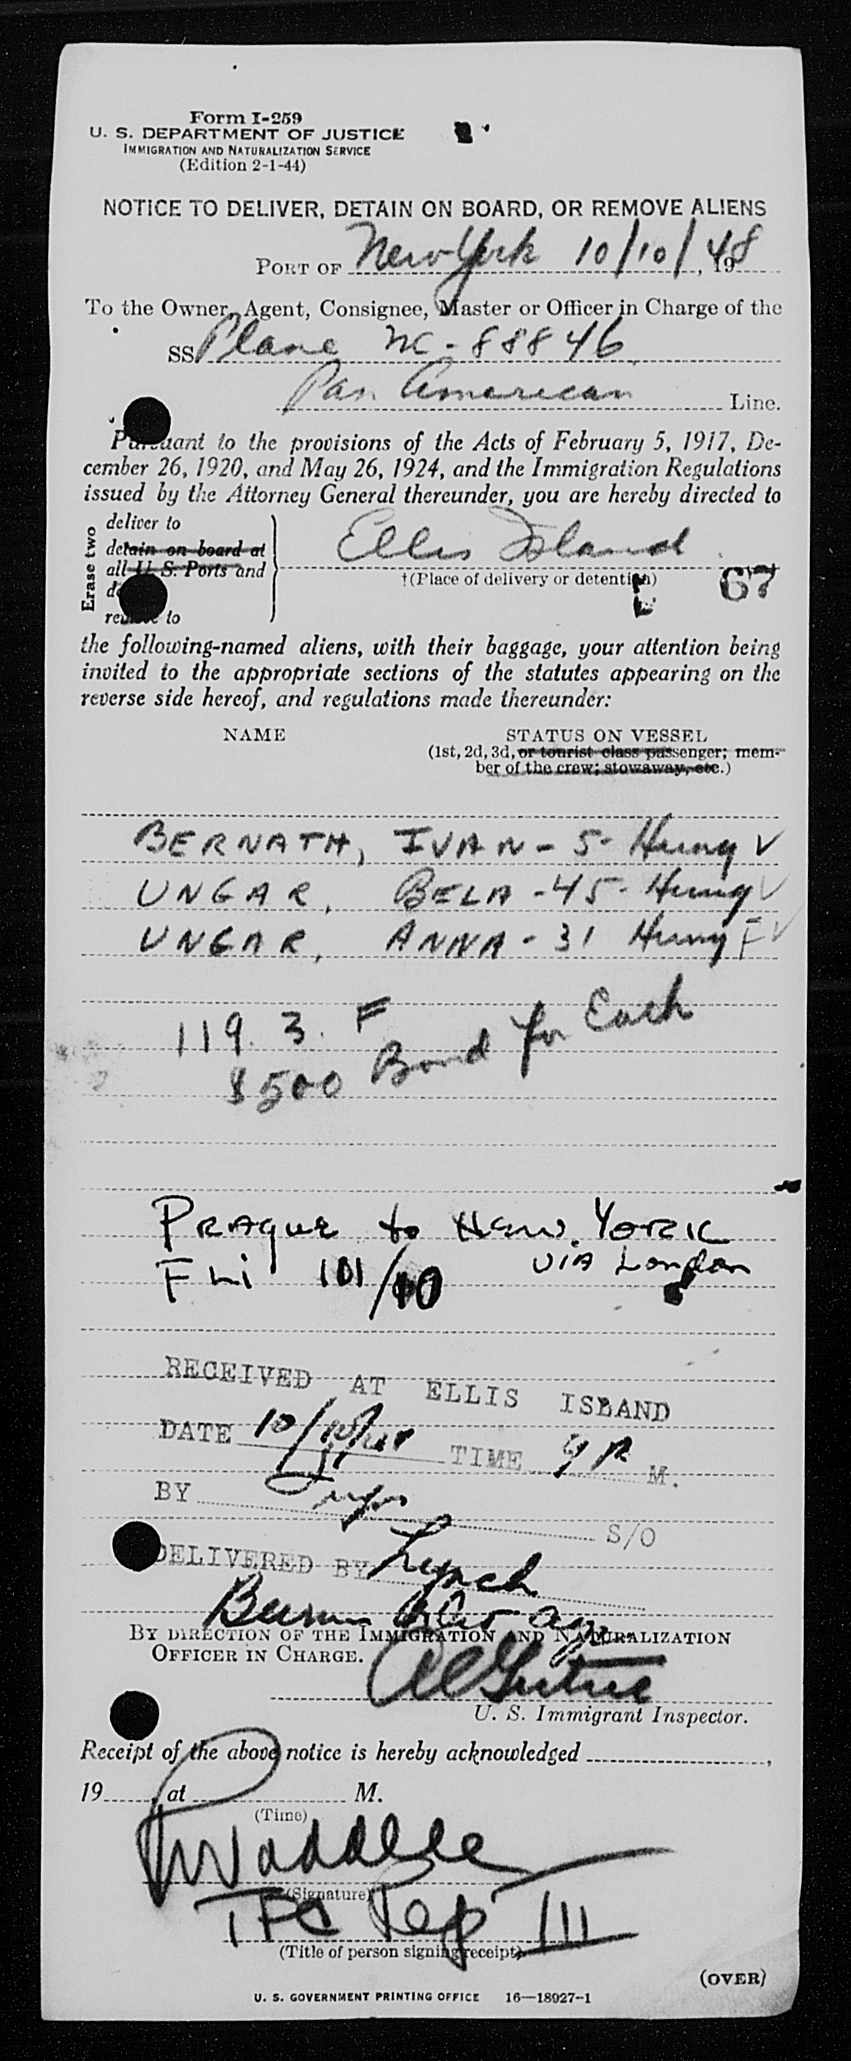 Form I-259
U. S. DEPARTMENT OF JUSTICE
IMMIGRATION AND NATURALIZATION SERVICE
(Edition 2-1-44)
NOTICE TO DELIVER, DETAIN ON BOARD, OR REMOVE ALIENS
PORT OF New York 10/10/, 1948
To the Owner, Agent, Consignee, Master or Officer in Charge of the
SS Plane NC-88846
Pan American Line.
Pursuant to the provisions of the Acts of February 5, 1917, De-
cember 26, 1920, and May 26, 1924, and the Immigration Regulations
issued by the Attorney General thereunder, you are hereby directed to
Erase two
deliver to
detain on board at
all U. S. Ports and
to
Ellis Island
†(Place of delivery or detention)
67
the following-named aliens, with their baggage, your attention being
invited to the appropriate sections of the statutes appearing on the
reverse side hereof, and regulations made thereunder:
NAME STATUS ON VESSEL
(1st, 2d, 3d, or tourist class passenger; mem-
ber of the crew; stowaway, etc.)
BERNATH, IVAN - 5 - Hung ✓
UNGAR, BELA - 45 - Hung ✓
UNGAR, ANNA - 31 Hung F ✓
119. 3. F
$500 Bond for Each
PRAGUE to NEW YORK
FLi 101/10 VIA London
RECEIVED AT ELLIS ISLAND
DATE 10/10/48 TIME 9 P M.
BY S/O
DELIVERED BY Lynch
BY DIRECTION OF THE IMMIGRATION AND NATURALIZATION
OFFICER IN CHARGE.
U. S. Immigrant Inspector.
Receipt of the above notice is hereby acknowledged ,
19 , at M.
(Time)
(Signature)
Rep III
(Title of person signing receipt)
(OVER)
U. S. GOVERNMENT PRINTING OFFICE 16—18927-1